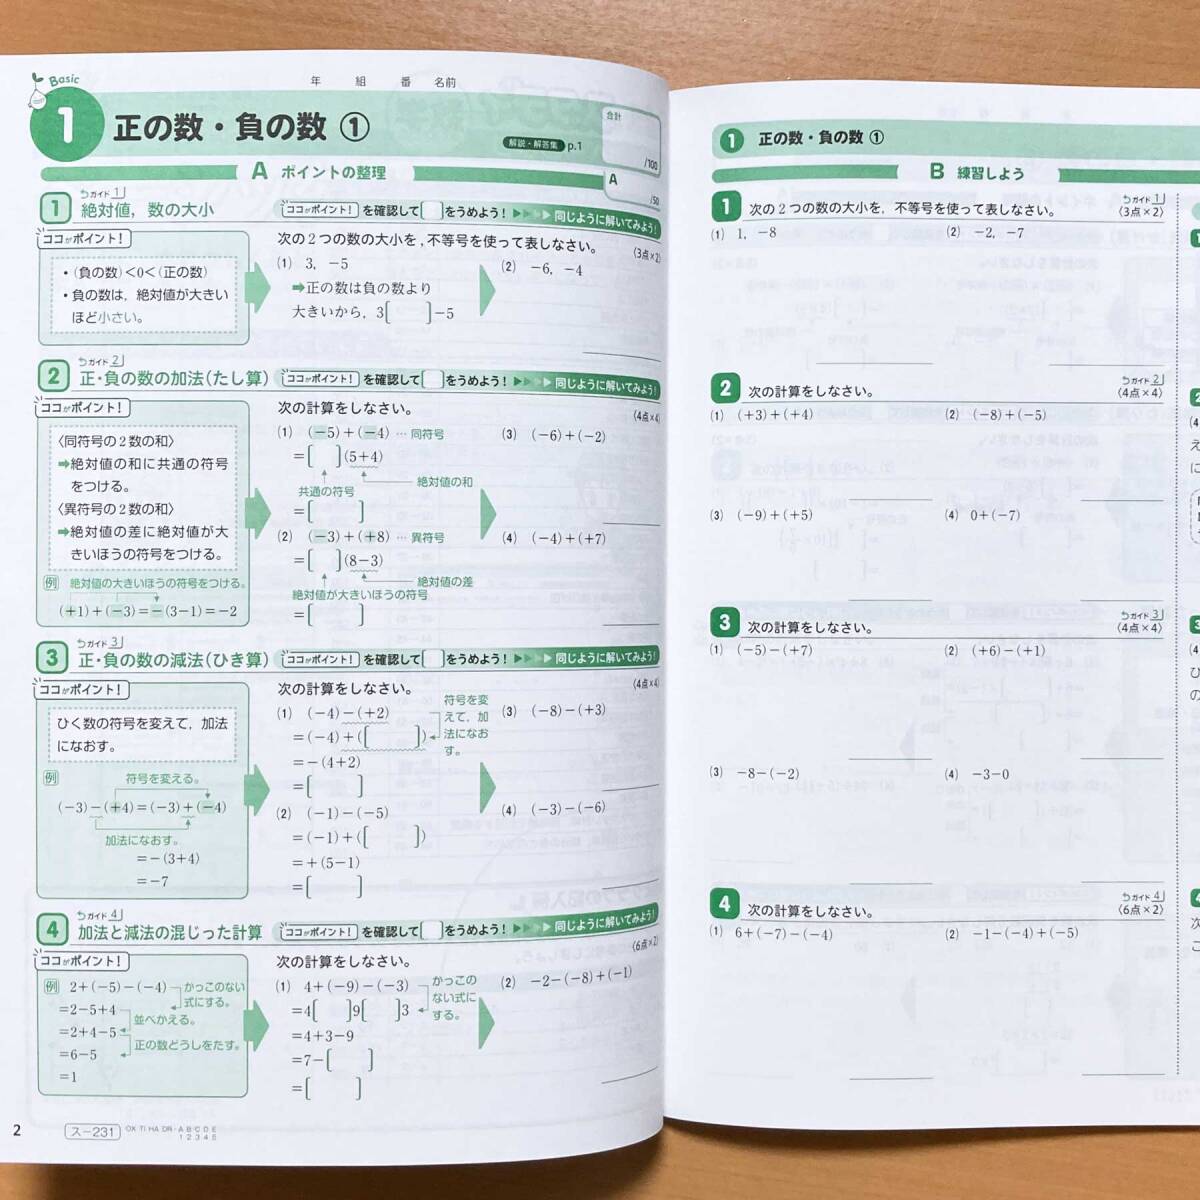 Basic
年 組 番 名前
1 正の数・負の数 ①
解説・解答集 p.1
合計
/100
A
/50
A ポイントの整理
ガイド 1
1 絶対値，数の大小
ココがポイント！を確認して□をうめよう！ 同じように解いてみよう！
ココがポイント！
・(負の数)<0<(正の数)
・負の数は，絶対値が大きい
ほど小さい。
次の2つの数の大小を，不等号を使って表しなさい。
〈3点×2〉
(1) 3，−5
➡正の数は負の数より
大きいから，3[ ]−5
(2) −6，−4
ガイド 2
2 正・負の数の加法(たし算)
ココがポイント！を確認して□をうめよう！ 同じように解いてみよう！
ココがポイント！
〈同符号の2数の和〉
➡絶対値の和に共通の符号
をつける。
〈異符号の2数の和〉
➡絶対値の差に絶対値が大
きいほうの符号をつける。
例 絶対値の大きいほうの符号をつける。
(+1)+(−3)=−(3−1)=−2
次の計算をしなさい。
〈4点×4〉
(1) (−5)+(−4) … 同符号
=[ ](5+4)
共通の符号
絶対値の和
=[ ]
(2) (−3)+(+8) … 異符号
=[ ](8−3)
絶対値の差
絶対値が大きいほうの符号
=[ ]
(3) (−6)+(−2)
(4) (−4)+(+7)
ガイド 3
3 正・負の数の減法(ひき算)
ココがポイント！を確認して□をうめよう！ 同じように解いてみよう！
ココがポイント！
ひく数の符号を変えて，加法
になおす。
例 符号を変える。
(−3)−(+4)=(−3)+(−4)
加法になおす。
=−(3+4)
=−7
次の計算をしなさい。
〈4点×4〉
(1) (−4)−(+2)
=(−4)+([ ])
=−(4+2)
=[ ]
符号を変
えて，加
法になお
す。
(2) (−1)−(−5)
=(−1)+([ ])
=+(5−1)
=[ ]
(3) (−8)−(+3)
(4) (−3)−(−6)
ガイド 4
4 加法と減法の混じった計算
ココがポイント！を確認して□をうめよう！ 同じように解いてみよう！
ココがポイント！
例 2+(−5)−(−4)
かっこのない
式にする。
=2−5+4
並べかえる。
=2+4−5
正の数どうしをたす。
=6−5
=1
次の計算をしなさい。
〈6点×2〉
(1) 4+(−9)−(−3)
=4[ ]9[ ]3
かっこの
ない式に
する。
=4+3−9
=7−[ ]
=[ ]
(2) −2−(−8)+(−1)
2
ス−231
OX TI HA DR・A B C D E
1 2 3 4 5
1 正の数・負の数 ①
B 練習しよう
ガイド 1
1 次の2つの数の大小を，不等号を使って表しなさい。
〈3点×2〉
(1) 1，−8
(2) −2，−7
ガイド 2
2 次の計算をしなさい。
〈4点×4〉
(1) (+3)+(+4)
(2) (−8)+(−5)
(3) (−9)+(+5)
(4) 0+(−7)
ガイド 3
3 次の計算をしなさい。
〈4点×4〉
(1) (−5)−(+7)
(2) (+6)−(+1)
(3) −8−(−2)
(4) −3−0
ガイド 4
4 次の計算をしなさい。
〈6点×2〉
(1) 6+(−7)−(−4)
(2) −1−(−4)+(−5)